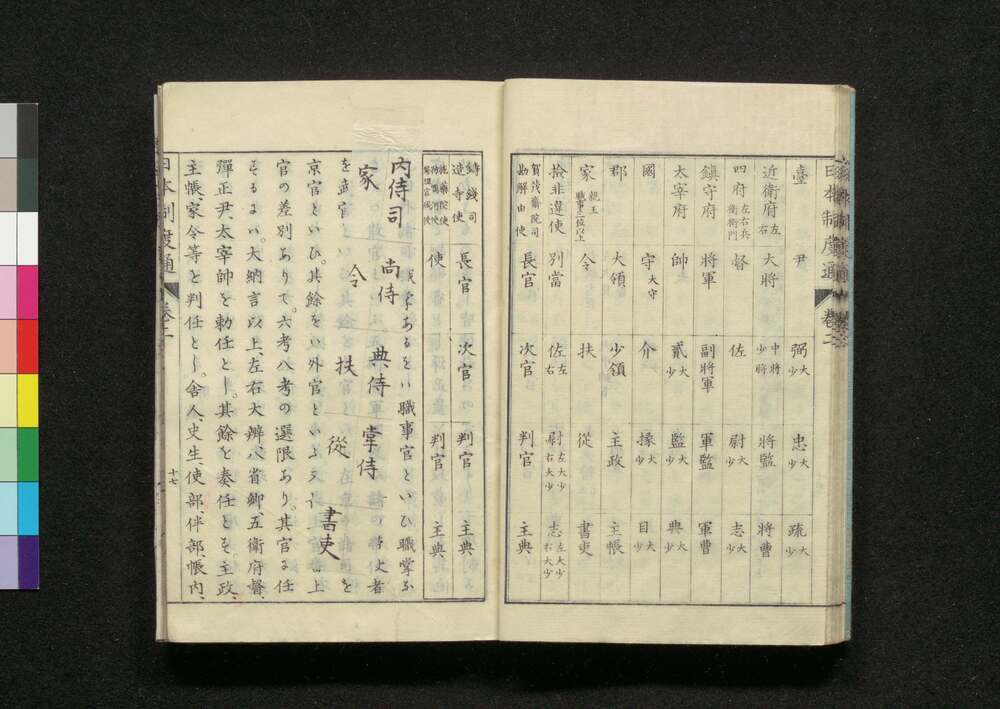 日本制度通 巻二
臺 尹 弼大少 忠大少 疏大少
近衛府左右 大将 中将少将 将監 将曹
四府左右兵衛衛門 督 佐 尉大少 志大少
鎮守府 将軍 副将軍 軍監 軍曹
太宰府 帥 貳大少 監大少 典大少
國 守大守 介 掾大少 目大少
郡 大領 少領 主政 主帳
家親王職事三位以上 令 扶 從 書吏
撿非違使 別當 佐左右 尉左大少右大少 志左大少右大少
賀茂齋院司勘解由使 長官 次官 判官 主典
鋳錢司造寺使 長官 次官 判官 主典
使 判官 主典
内侍司 尚侍 典侍 掌侍
家 令 扶 從 書吏
あるをバ職事官といひ職掌な
を武官
京官といひ。其餘をバ外官といふ
官の差別ありて。六考八考の選限あり。其官に任
するにハ。大納言以上左右大辨八省卿五衛府督、
彈正尹、太宰帥を勅任とし。其餘を奏任とす。主政、
主帳、家令等を判任とし。舎人、史生、使部、伴部、帳内、
日本制度通 巻二 十七